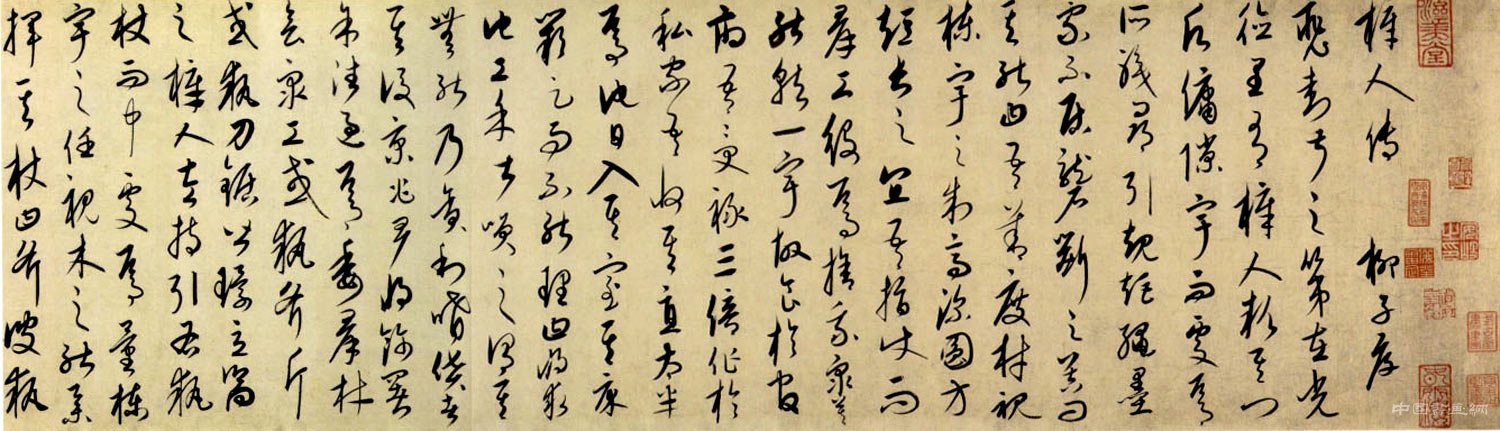 梓人傳 柳子厚
裴封叔之第在光
德里有梓人款其門
願傭隙宇而處焉
所職尋引規矩繩墨
家不居礱斲之器問
其能曰吾善度材視
棟宇之制高深圓方
短長之宜吾指使而
群工役焉捨我眾莫
能就一宇故食於官
府吾受祿三倍作於
私家吾收其直太半
焉他日入其室其床
闕足而不能理曰將求
他工余甚笑之謂其
無能乃貪利嗜貨者
其後京兆尹將飾署
余往過焉委群材
會眾工或執斧斤
或執刀鋸皆環立嚮
之梓人左持引右執
杖而中處焉量棟
宇之任視木之能舉
揮其杖曰斧彼執
中国书画網